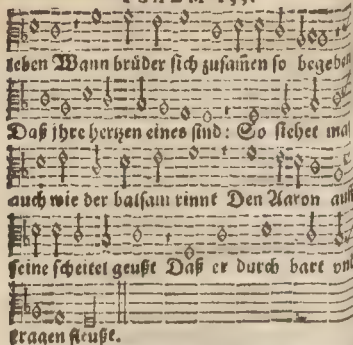 leben Wann brüder sich zusam̃en so begeben
Daß jhre hertzen eines sind: So siehet man
auch wie der balsam rinnt Den Aaron auff
seine scheitel geußt Daß er durch bart vnd
kragen fleußt.